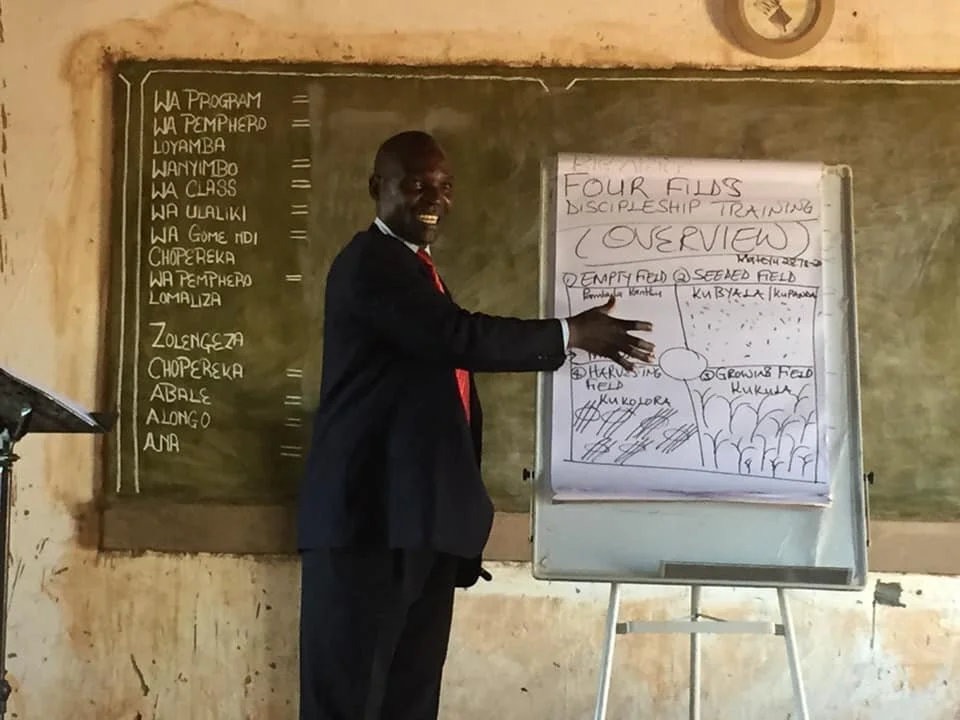 WA PROGRAM =
WA PEMPHERO =
LOYAMBA
WANYIMBO =
WA CLASS =
WA ULALIKI =
WA GOME NDI =
CHOPEREKA
WA PEMPHERO =
LOMALIZA
ZOLENGEZA
CHOPEREKA =
ABALE =
ALONGO =
ANA =
FOUR FILDS
DISCIPLESHIP TRAINING
(OVERVIEW)
① EMPTY FIELD ② SEEDED FIELD
KUBYALA | KUPANDA
④ HARVESTING FIELD
KUKOLORA
③ GROWING FIELD
KUKULA